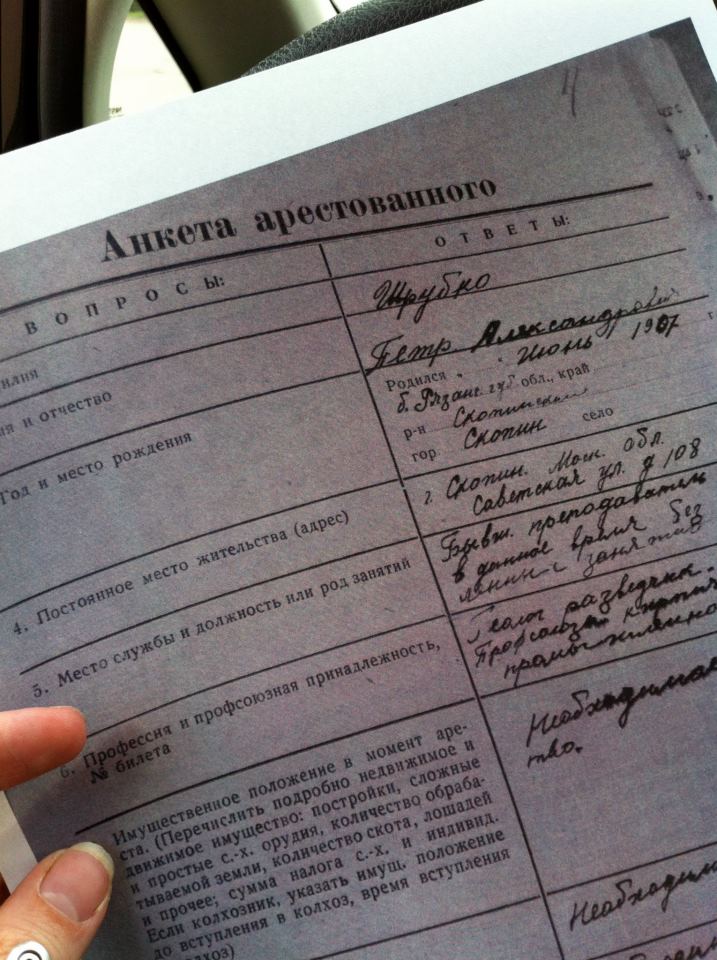 4
Анкета арестованного
ВОПРОСЫ:
ОТВЕТЫ:
илия
Шрубко
мя и отчество
Петр Александрович
Год и место рождения
Родился " " Июнь 1907 г
б. Рязанс. губ обл., край
р-н Скопинский
гор Скопин село
4. Постоянное место жительства (адрес)
г. Скопин. Моск. обл.
Советская ул. д 108
5. Место службы и должность или род занятий
Бывш. преподаватель
в данное время без
занятий
6. Профессия и профсоюзная принадлежность,
№ билета
Геолог разведчик.
Профсоюз
Имущественное положение в момент аре-
ста. (Перечислить подробно недвижимое и
движимое имущество: постройки, сложные
и простые с.-х. орудия, количество обраба-
тываемой земли, количество скота, лошадей
и прочее; сумма налога с.-х. и индивид.
Если колхозник, указать имущ. положение
до вступления в колхоз, время вступления
лхоз)
тво.